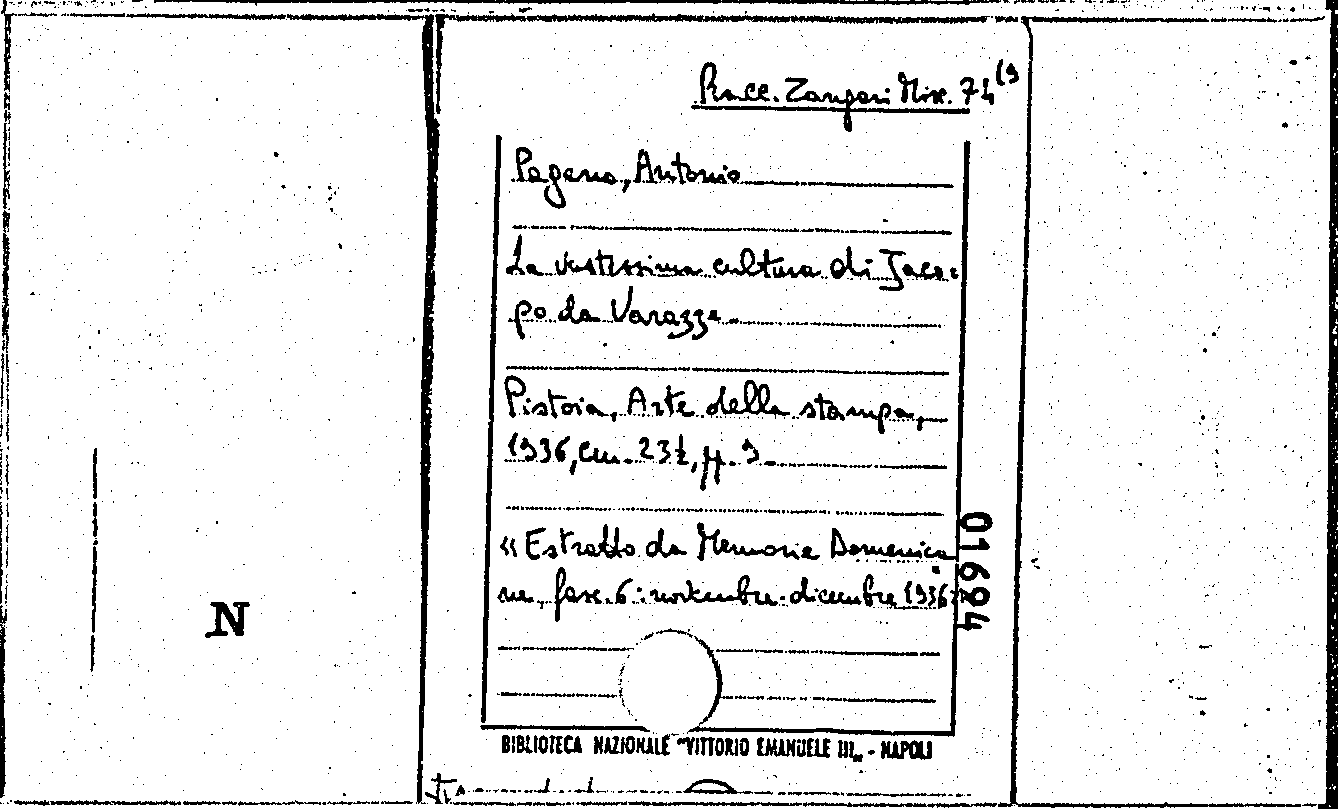 Racc. Zangari Misc. 74 (9
Pagano, Antonio
La vastissima cultura di Jaco=
po da Varazze.
Pistoia, Arte della stampa,
1936, cm. 23½, pp. 9.
« Estratto da Memorie Domenica
ne, fasc. 6: novembre-dicembre 1936»
01694
N
BIBLIOTECA NAZIONALE "VITTORIO EMANUELE III„ - NAPOLI